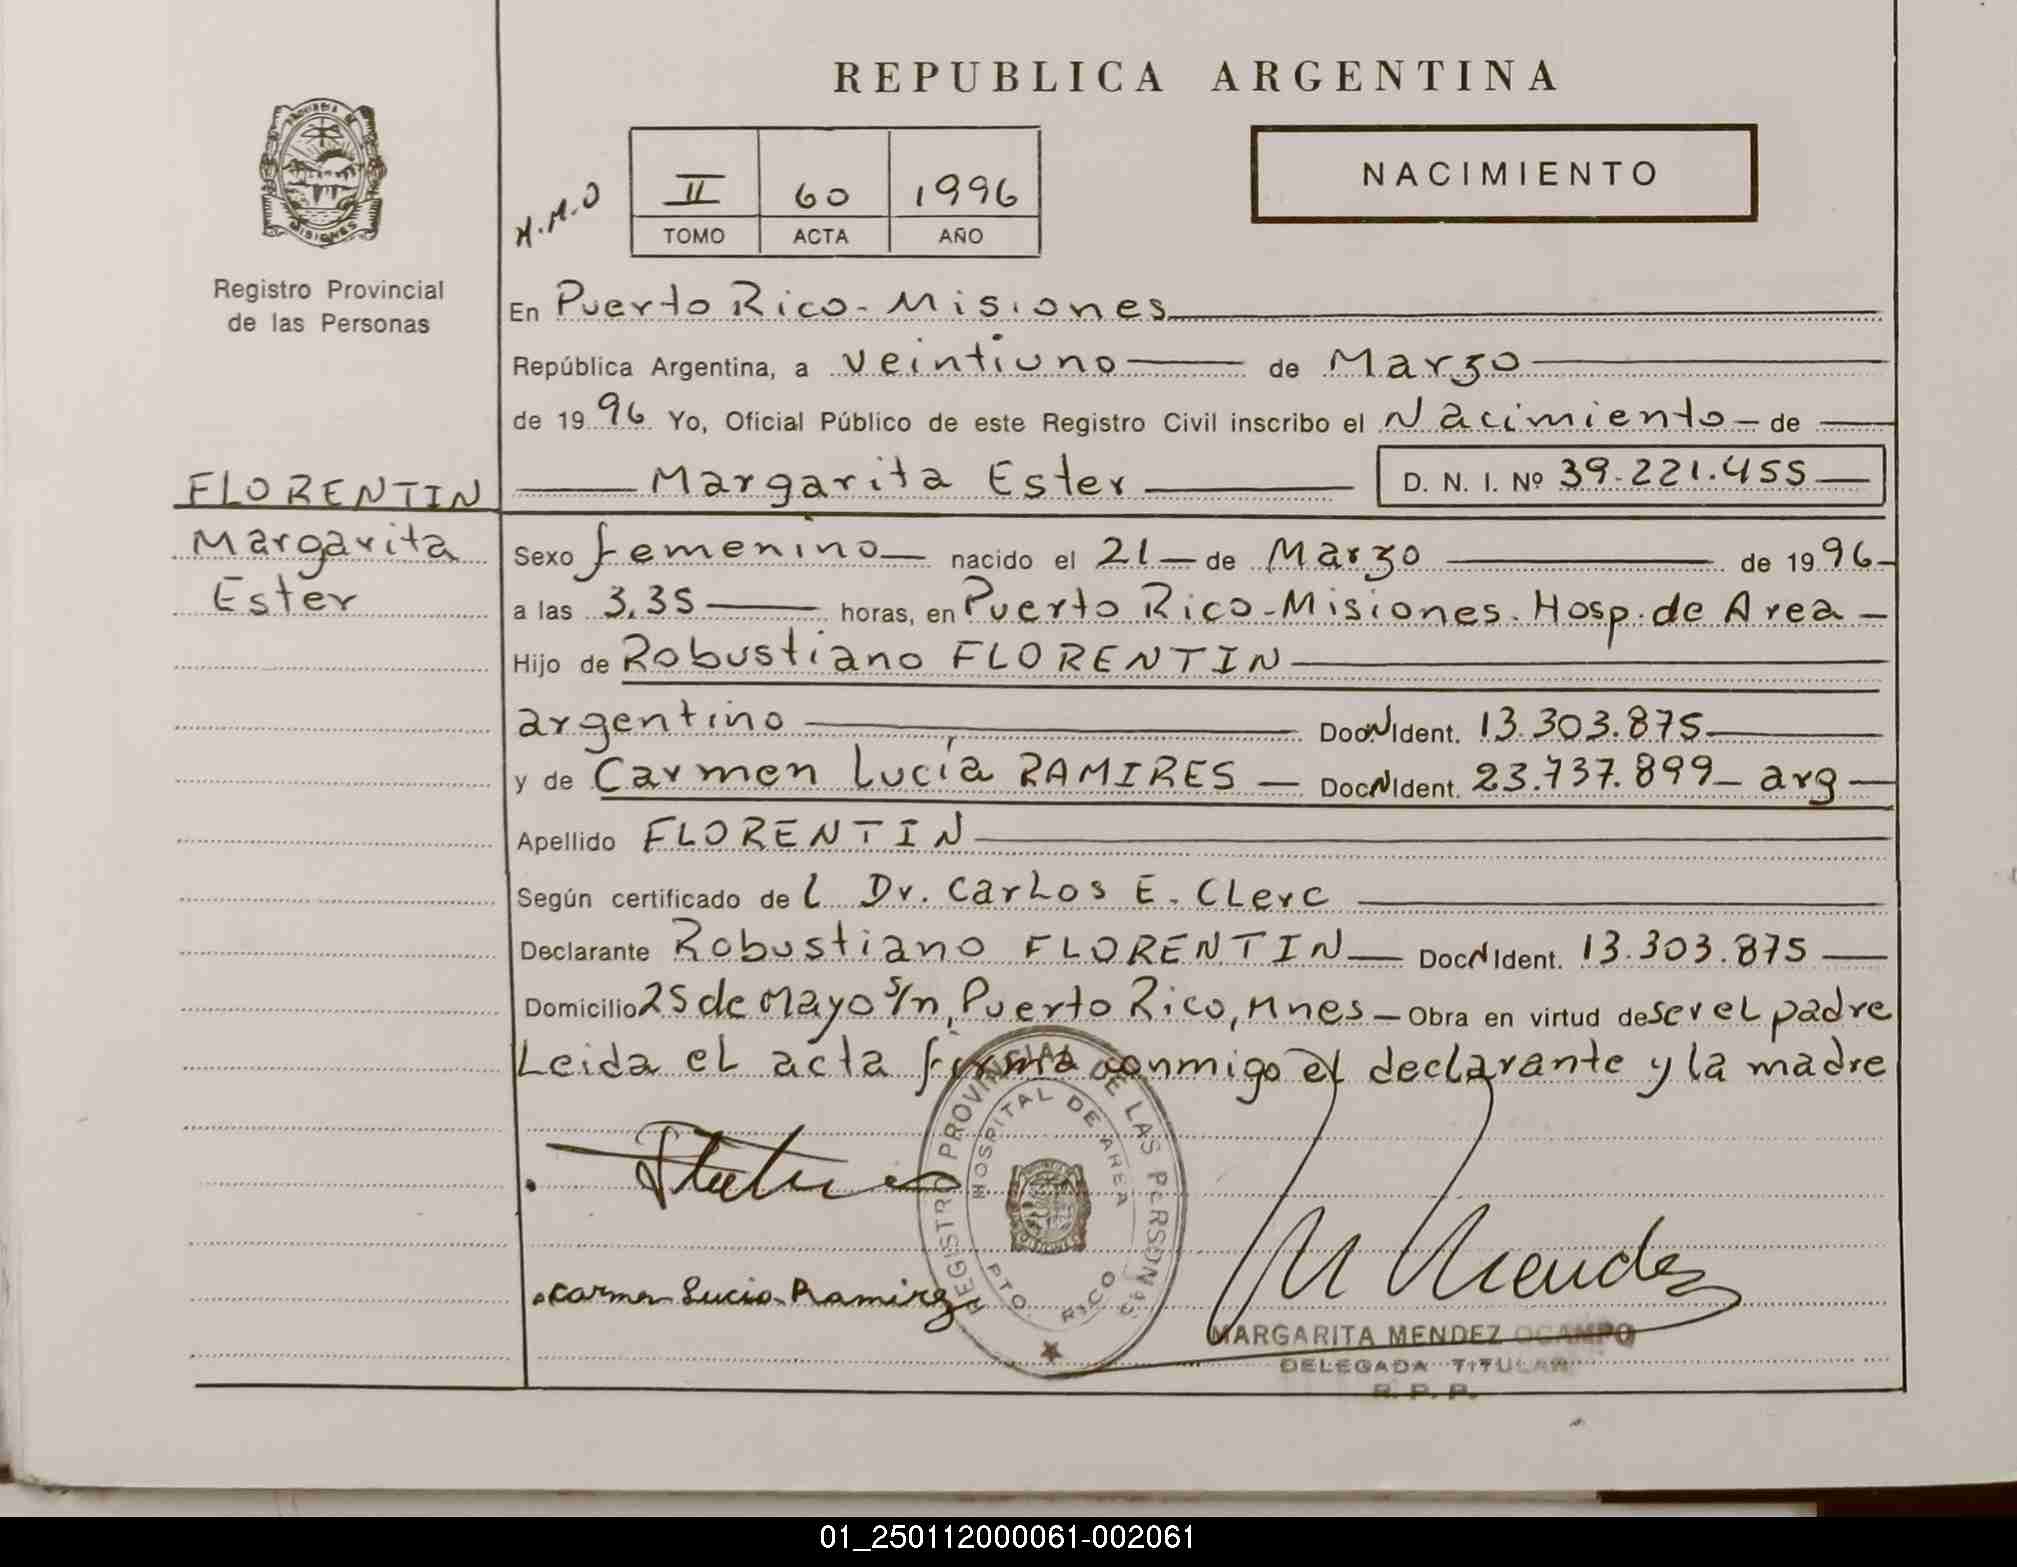 REPUBLICA ARGENTINA
PROVINCIA DE
MISIONES
Registro Provincial
de las Personas
M.M.O
II 60 1996
TOMO ACTA AÑO
NACIMIENTO
En Puerto Rico - Misiones
República Argentina, a veintiuno de Marzo
de 1996 Yo, Oficial Público de este Registro Civil inscribo el Nacimiento de
Margarita Ester D. N. I. Nº 39.221.455
FLORENTIN
Margarita
Ester
Sexo femenino nacido el 21 de Marzo de 1996
a las 3,35 horas, en Puerto Rico - Misiones. Hosp. de Area
Hijo de Robustiano FLORENTIN
argentino Doc. N Ident. 13.303.875
y de Carmen Lucía RAMIRES Doc N Ident. 23.737.899 - arg
Apellido FLORENTIN
Según certificado de l Dr. Carlos E. Clerc
Declarante Robustiano FLORENTIN Doc N Ident. 13.303.875
Domicilio 25 de Mayo s/n, Puerto Rico, Mnes Obra en virtud de ser el padre
Leida el acta firma conmigo el declarante y la madre
REGISTRO PROVINCIAL DE LAS PERSONAS
HOSPITAL DE AREA
PTO. RICO
Carmen Lucia Ramirez
M Mendez
MARGARITA MENDEZ OCAMPO
DELEGADA TITULAR
R. P. P.
01_250112000061-002061